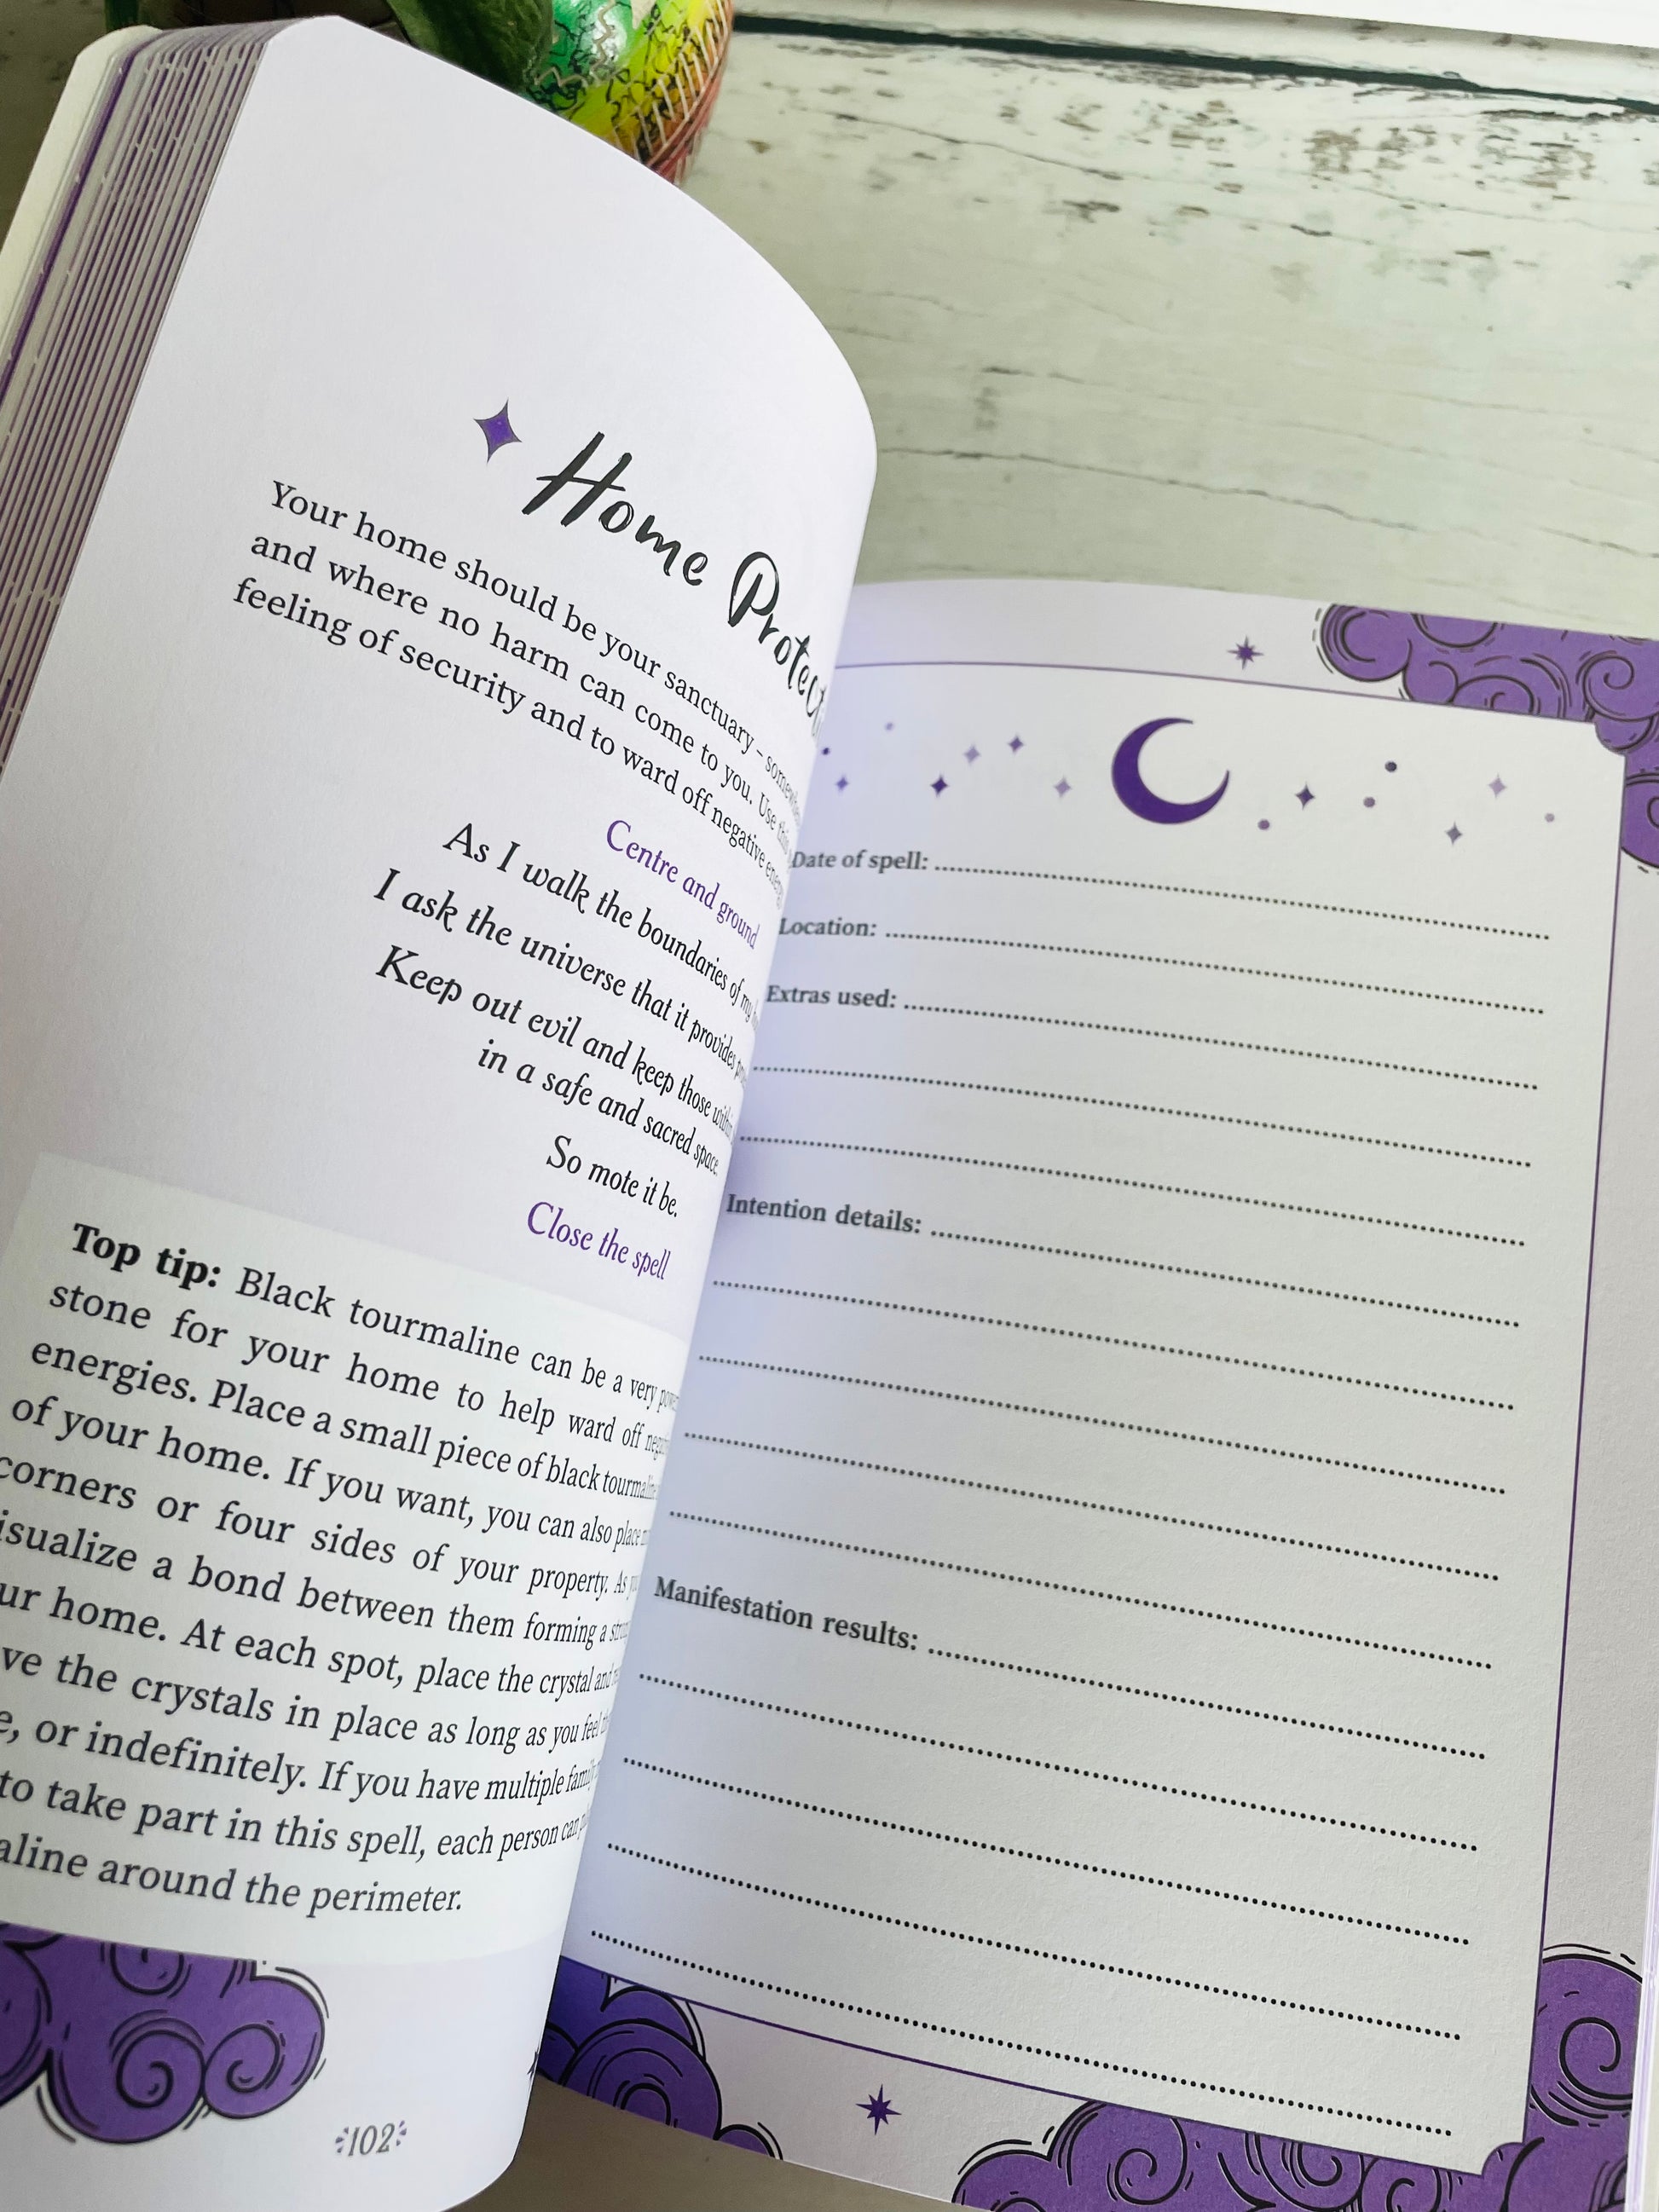 Home
Your home should be your sanctuary –
and where no harm can come to you. Use this
feeling of security and to ward off negative
Centre and ground
As I walk the boundaries of my
I ask the universe that it provides
Keep out evil and keep those within
in a safe and sacred space.
So mote it be.
Close the spell
Top tip: Black tourmaline can be a very
stone for your home to help ward off
energies. Place a small piece of black
of your home. If you want, you can also place
corners or four sides of your property. As
a bond between them forming a
home. At each spot, place the crystal and
the crystals in place as long as you feel
or indefinitely. If you have multiple
to take part in this spell, each person can
around the perimeter.
102
Date of spell:
Location:
Extras used:
Intention details:
Manifestation results: